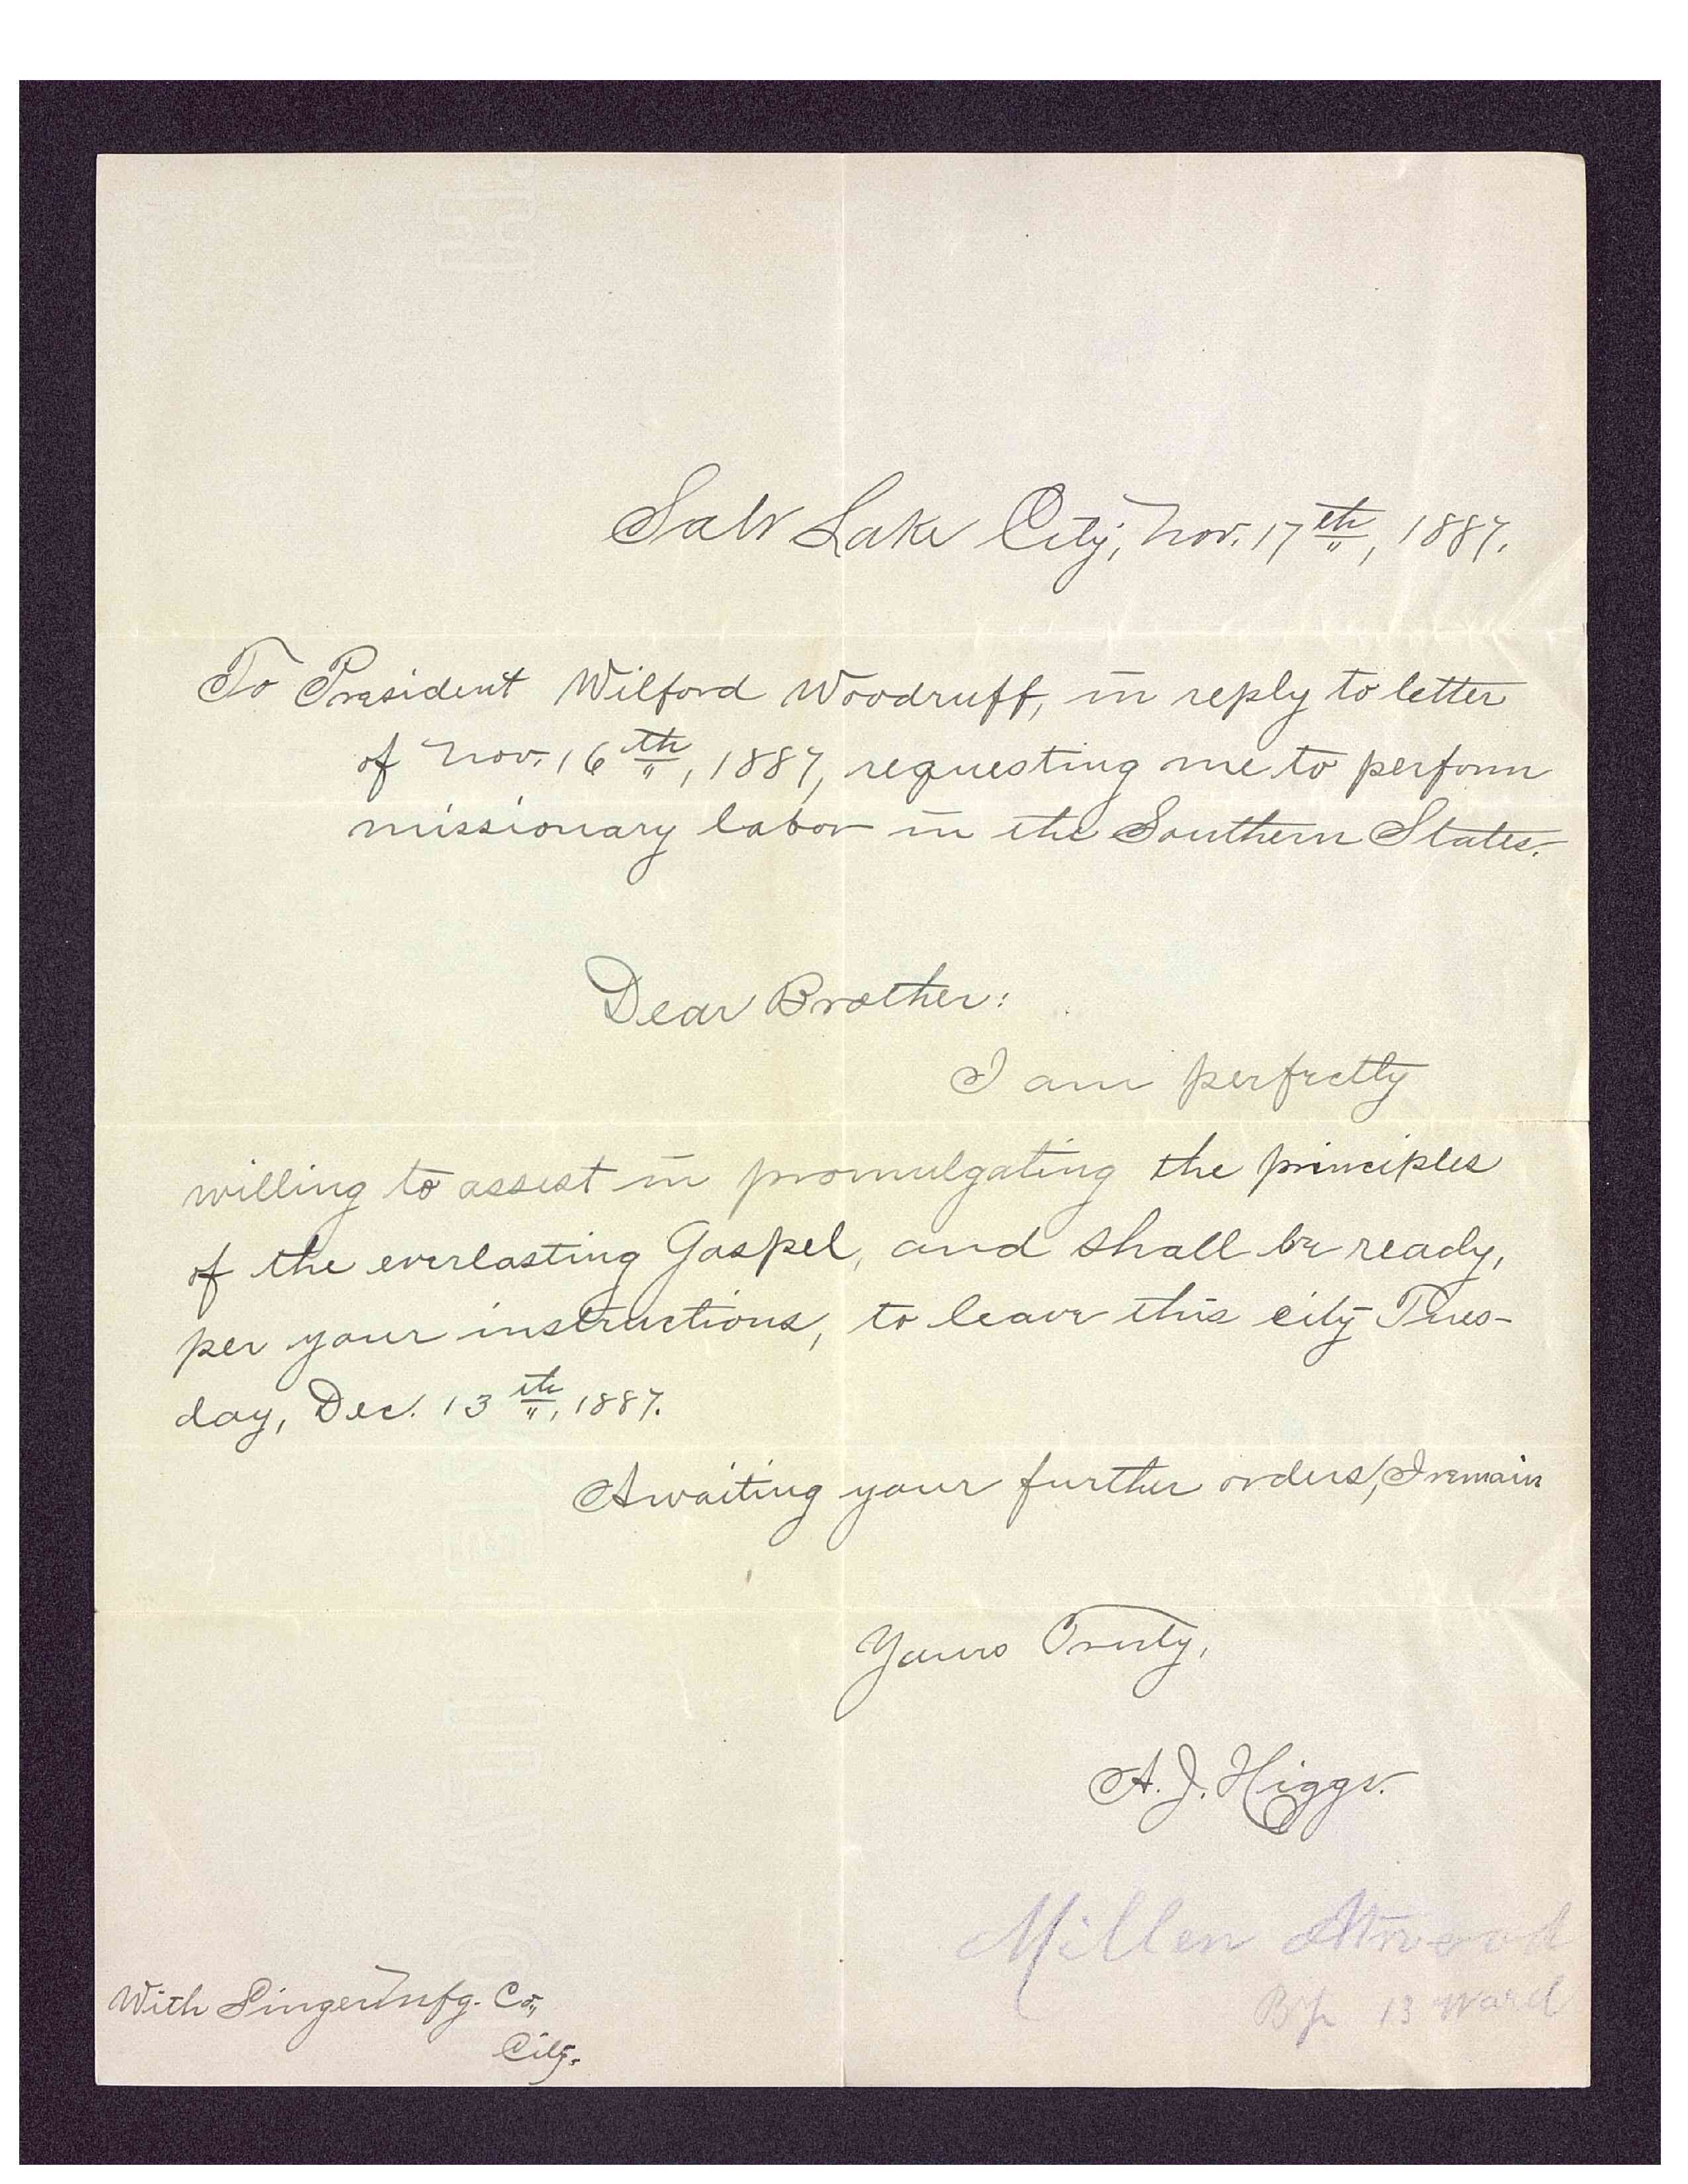 Salt Lake City, Nov. 17th, 1887.
To President Wilford Woodruff, in reply to letter
of Nov. 16th, 1887, requesting me to perform
missionary labor in the Southern States.
Dear Brother:
I am perfectly
willing to assist in promulgating the principles
of the everlasting Gospel, and shall be ready,
per your instructions, to leave this city Tues-
day, Dec. 13th, 1887.
Awaiting your further orders, I remain
Yours Truly,
A. J. Higgs.
Millen Atwood
Bp 13 Ward
With Singer Mnfg. Co.,
City.